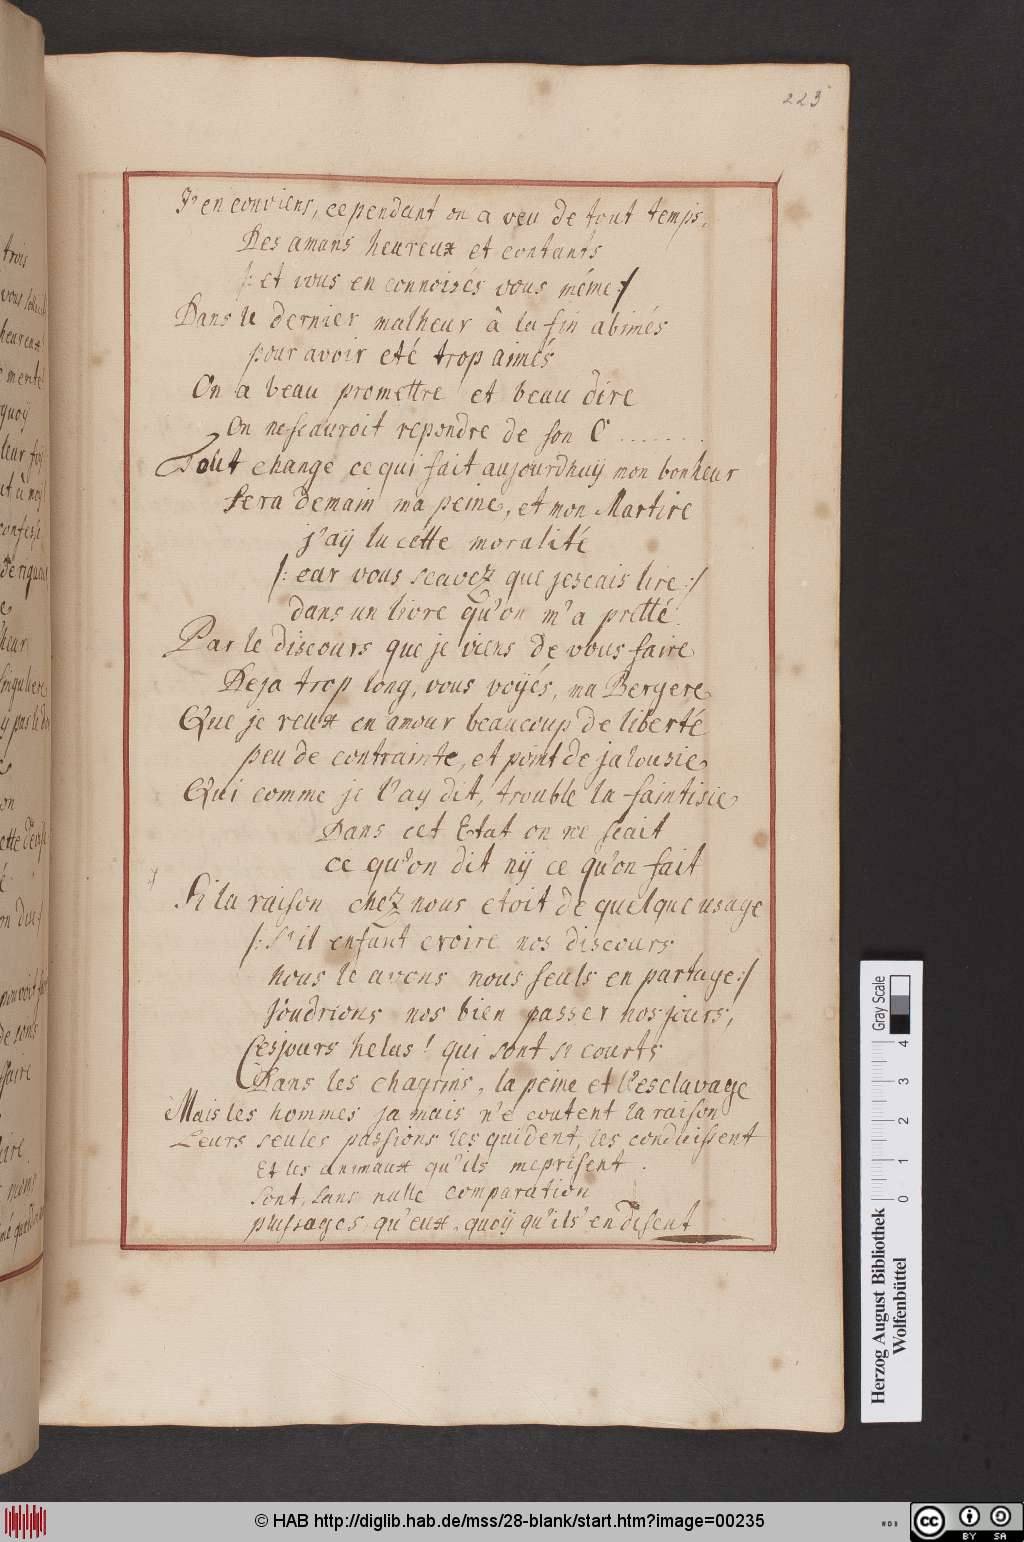 223
J'en conviens, cependant on a veu de tout temps,
Des amans heureux et contants
/: et vous en connoisés vous méme :/
Dans le dernier malheur â la fin abimés
pour avoir eté trop aimés
On a beau promettre et beau dire
On ne scauroit repondre de son C .......
Tout change ce qui fait aujourdhuÿ mon bonheur
Sera demain ma peine, et mon Martire
j'aÿ lu cette moralité
/: car vous scavez que je scais lire :/
dans un livre qu'on m'a pretté.
Par le discours que je viens de vous faire
Deja trop long, vous voÿés, ma Bergere
Que je veux en amour beaucoup de liberté
peu de contrainte, et point de jalousie
Qui comme je l'ay dit, trouble la faintisie
Dans cet Etat on ne scait
ce qu'on dit nÿ ce qu'on fait
Si la raison chez nous etoit de quelque usage
/: S'il enfaut croire nos discours
nous le avons nous seuls en partage :/
Voudrions nos bien passer nos jours,
Ces jours helas! qui sont si courts
Dans les chagrins, la peine et l'esclavage
Mais les hommes jamais n'e coutent la raison
Leurs seules passions les guident, les conduissent
Et les animaux qu'ils meprisent.
sont, sans nulle comparation
plus sages, qu'eux, quoÿ qu'ils en disent
trois
heureux
merite
quoÿ
leur
heur
singuliere
on
de sons
faire
Herzog August Bibliothek
Wolfenbüttel
Gray Scale
0 1 2 3 4
© HAB http://diglib.hab.de/mss/28-blank/start.htm?image=00235
WDB
cc
BY SA